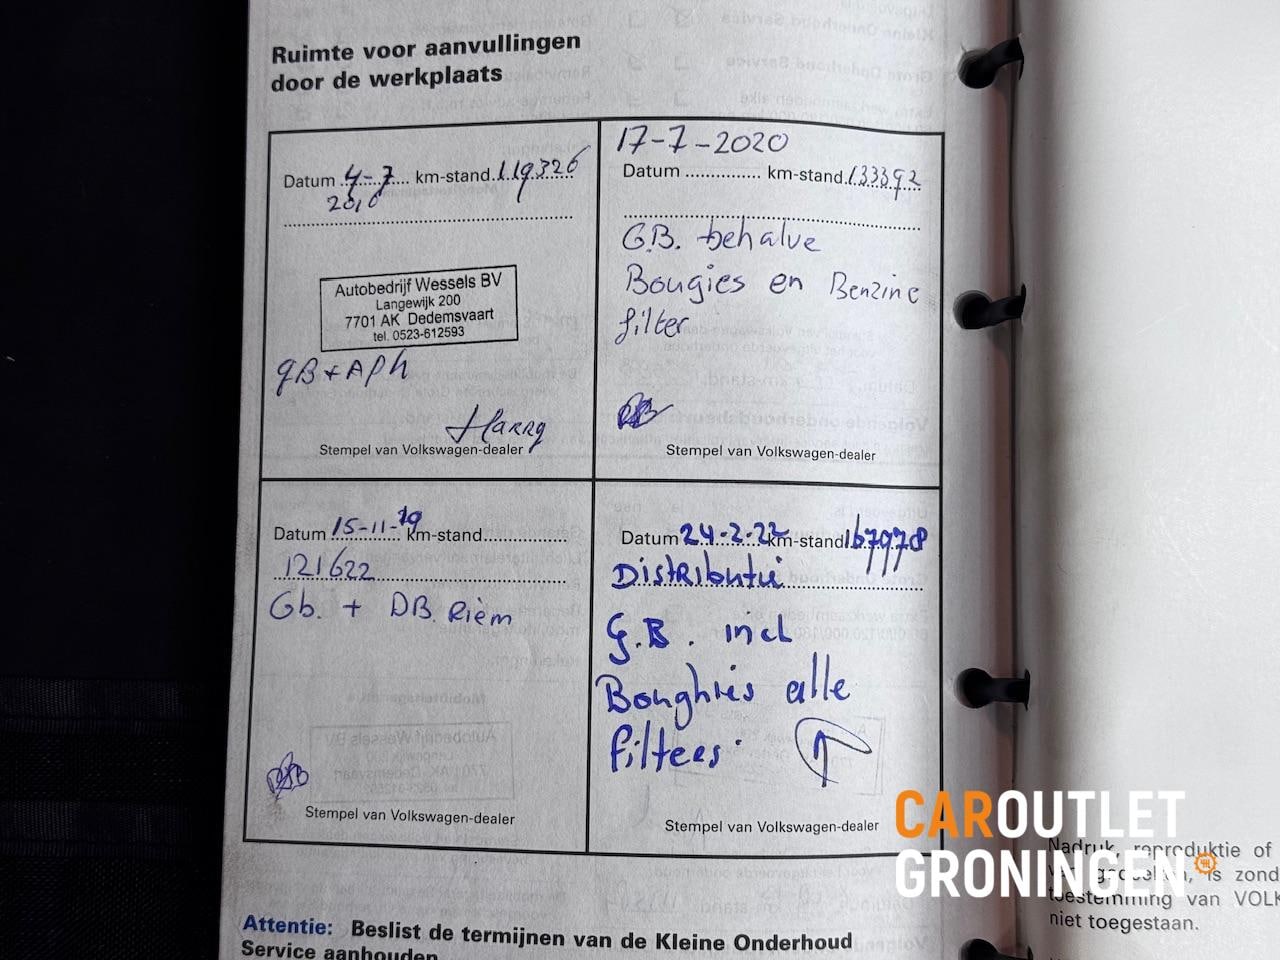 Ruimte voor aanvullingen
door de werkplaats
Datum 4-7 km-stand 119326
Autobedrijf Wessels BV
Langewijk 200
7701 AK Dedemsvaart
tel. 0523-612593
gB + APh
Harry
Stempel van Volkswagen-dealer
17-7-2020
Datum .............. km-stand 133392
G.B. behalve
Bougies en Benzine
filter
Stempel van Volkswagen-dealer
Datum 15-11-19 km-stand..............
121622
Gb. + DB. Riem
Stempel van Volkswagen-dealer
Datum 24-2-22 km-stand 167978
Distributie
G.B. incl
Boughies alle
filters
Stempel van Volkswagen-dealer
Attentie: Beslist de termijnen van de Kleine Onderhoud
Service aanhouden
CAROUTLET
GRONINGEN
Nadruk, reproduktie of
is zond
toestemming van VOLK
niet toegestaan.